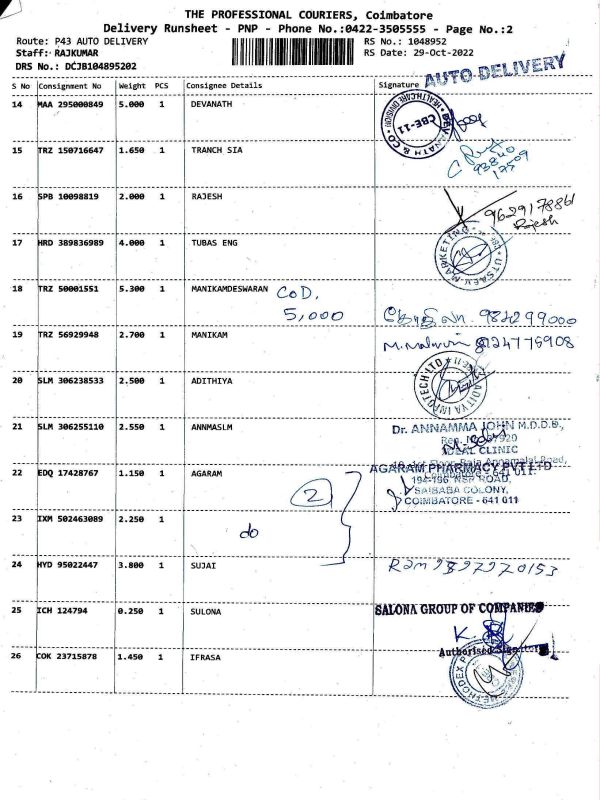 THE PROFESSIONAL COURIERS, Coimbatore
Delivery Runsheet - PNP - Phone No.:0422-3505555 - Page No.:2
Route: P43 AUTO DELIVERY RS No.: 1048952
Staff: RAJKUMAR RS Date: 29-Oct-2022
DRS No.: DCJB104895202
AUTO DELIVERY
S No Consignment No Weight PCS Consignee Details Signature
14 MAA 295000849 5.000 1 DEVANATH
CBE-11
15 TRZ 150716647 1.650 1 TRANCH SIA
16 SPB 10098819 2.000 1 RAJESH
9629178861
Rajesh
17 HRD 389836989 4.000 1 TUBAS ENG
UTSAEV MARKETING
18 TRZ 50001551 5.300 1 MANIKAMDESWARAN COD,
5,000
19 TRZ 56929948 2.700 1 MANIKAM
20 SLM 306238533 2.500 1 ADITHIYA
ADITYA INFOTECH LTD
21 SLM 306255110 2.550 1 ANNMASLM Dr. ANNAMMA JOHN M.D.D.D.,
IDEAL CLINIC
22 EDQ 17428767 1.150 1 AGARAM AGARAM PHARMACY PVT LTD
194-196 NSR ROAD,
2 SAIBABA COLONY,
COIMBATORE - 641 011
23 IXM 502463089 2.250 1 do
24 HYD 95022447 3.800 1 SUJAI
25 ICH 124794 0.250 1 SULONA SALONA GROUP OF COMPANIES
Authorised Signatory
26 COK 23715878 1.450 1 IFRASA